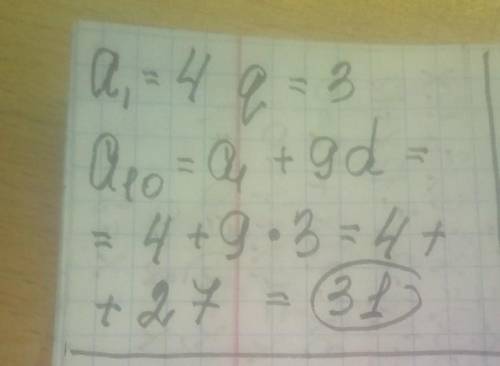 a₁ = 4 q = 3
a₁₀ = a₁ + 9d =
= 4 + 9 · 3 = 4 +
+ 27 = 31